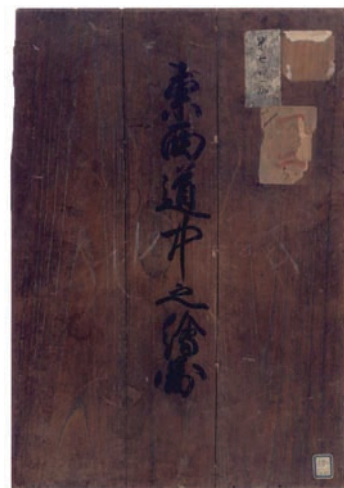 東西道中之繪圖